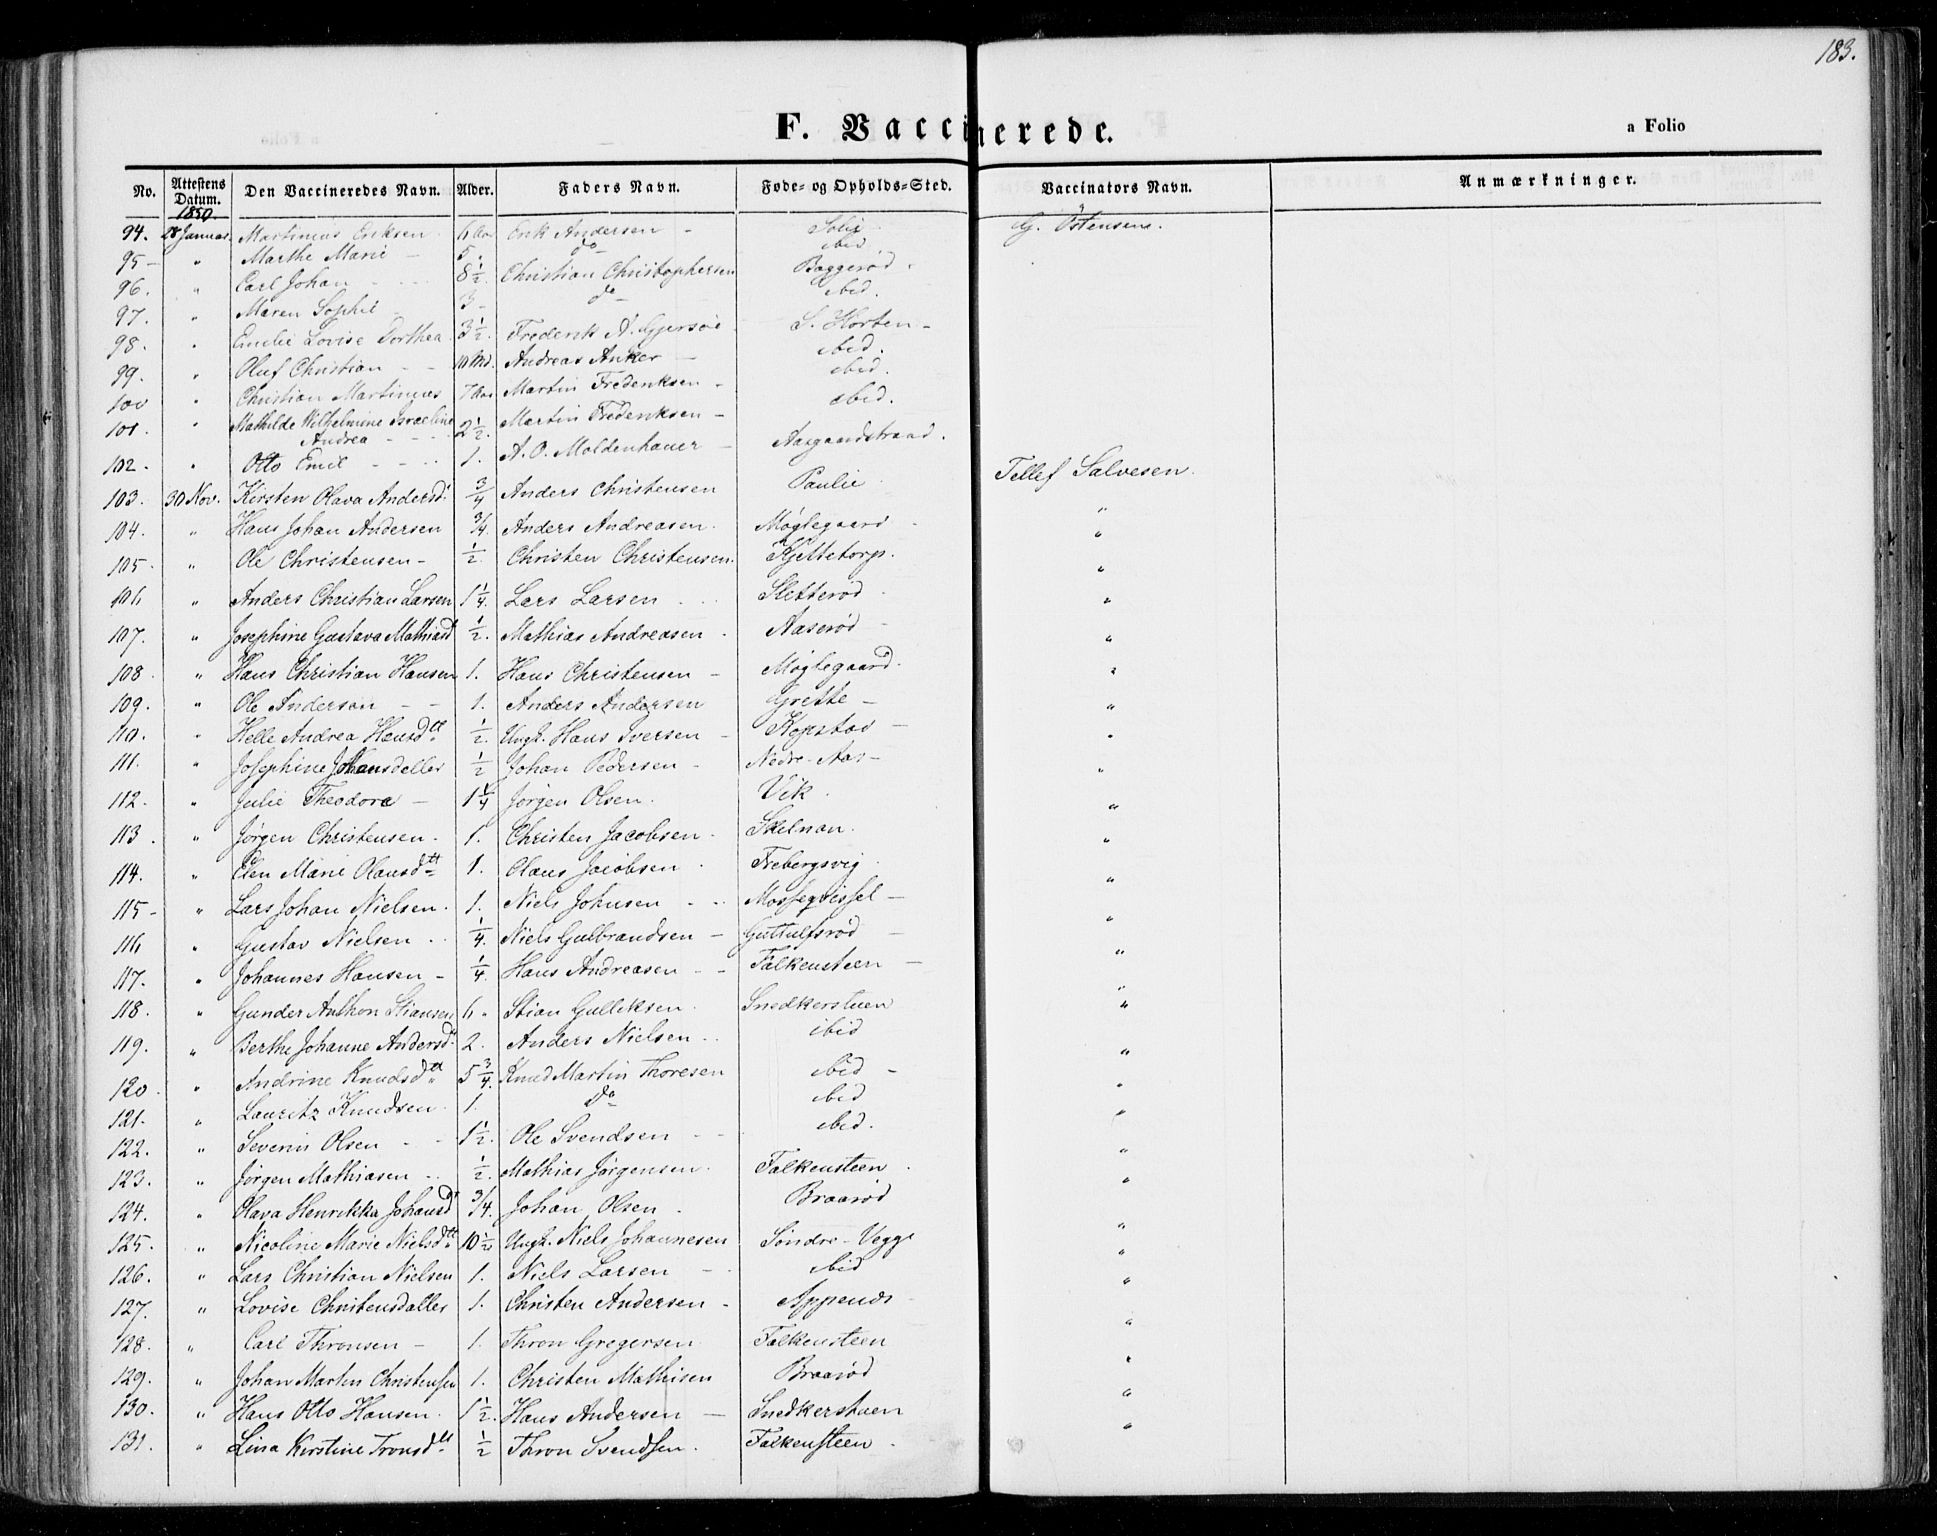 183.
F. Vaccinerede.
a Folio
No. Attestens Datum. Den Vaccineredes Navn. Alder. Faders Navn. Føde- og Opholds-Sted. Vaccinators Navn. Anmærkninger.
1850
94. 28 Januar. Martinius Eriksen 6 Aar Erik Andersen - Solie G. Østensen.
95 - " Marthe Marie - 5 " do ibid
96. " Carl Johan - - - 8 1/2. Christian Christophersen Baggerød.
97. " Maren Sophie 3 - do ibid.
98. " Emilie Lovise Dorthea 3 1/2. Frederik A. Gjersøe S. Horten -
99. " Oluf Christian - - 10 Md. Andreas Anker - ibid.
100 " Christian Martinius 7 Aar Martin Frederiksen - ibid.
101. " Mathilde Wilhelmine Israeline Andrea - - - 2 1/2. Martin Frederiksen - ibid.
102. " Otto Emil - - - 1. A. O. Moldenhauer - Aasgaardstrand.
103. 30 Nov. Kirsten Olava Andersd. 3/4 Anders Christensen Paulie Tellef Salvesen.
104. " Hans Johan Andersen 3/4. Anders Andreasen. Møglegaard - "
105 - " Ole Christensen - 1/2. Christen Christensen. Kjeltetorp. "
106 " Anders Christian Larsen 1 1/4. Lars Larsen - - Sletterød "
107. " Josephine Gustava Mathiasd 1/2. Mathias Andreasen. Aaserød - "
108 " Hans Christian Hansen 1. Hans Christensen - Møglegaard. "
109. " Ole Andersen - - 1. Anders Andersen Grette - "
110. " Helle Andrea Hansdtt 1/2. Ungk. Hans Iversen - Kopstad - "
111. " Josephine Johansdatter 1/2 Johan Pedersen - Nedre-Aas - "
112. " Julie Theodora - 1 1/4 Jørgen Olsen. Vik. "
113. " Jørgen Christensen. 1. Christen Jacobsen. Skelnan. "
114. " Elen Marie Olausdtt 1. Olaus Jacobsen. Frebergsvig "
115 - " Lars Johan Nielsen. 1. Niels Johnsen - - Mossegvissel - "
116 " Gustav Nielsen - - 1/4. Niels Gulbrandsen - Guttulfsrød - "
117. " Johannes Hansen - 1/4. Hans Andreasen - - Falkensteen - "
118. " Gunder Anthon Stiansen 6 " Stian Gulleksen. Snedkerstuen "
119. " Berthe Johanne Andersd. 2. Anders Nielsen - - ibid "
120. " Andrine Knudsdtt 5 3/4. Knud Martin Thoresen ibid - "
121. " Lauritz Knudsen. 1. do ibid "
122. " Severin Olsen - - 1 1/2. Ole Svendsen - - ibid. "
123. " Jørgen Mathiasen - - 1/2. Mathias Jørgensen. Falkensteen. "
124. " Olava Henrikka Johansd 3/4. Johan Olsen. Braarød "
125. " Nicoline Marie Nielsdtt 10 1/2 Ungk. Niels Johannesen Søndre-Vegge "
126. " Lars Christian Nielsen 1. Niels Larsen - ibid "
127. " Lovise Christensdatter 1. Christen Andersen - Appenæs - "
128. " Carl Thronsen - 1. Thron Gregersen Falkensteen "
129. " Johan Martin Christensen 1. Christen Mathisen Braarød "
130. " Hans Otto Hansen. 1 1/2. Hans Andersen - Snedkerstuen "
131. " Lina Kirstine Tronsdtt 1/2 Thron Svendsen. Falkensteen. "